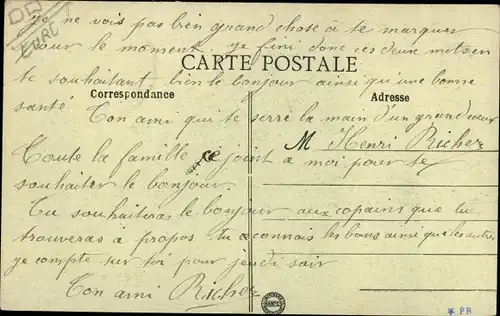 EURO
je ne vois pas bien grand chose à te marquer
pour le moment. je fini donc ces deux mots en
te souhaitant bien le bonjour ainsi qu'une bonne
santé
CARTE POSTALE
Correspondance
Adresse
Ton ami qui te serre la main d'un grand cœur
M Henri Richer
Toute la famille se joint a moi pour te
souhaiter le bonjour.
Tu souhaiteras le bonjour aux copains que tu
trouveras à propos tu connais les bons ainsi que les autres
je compte sur toi pour jeudi soir
Ton ami Richer
* PB